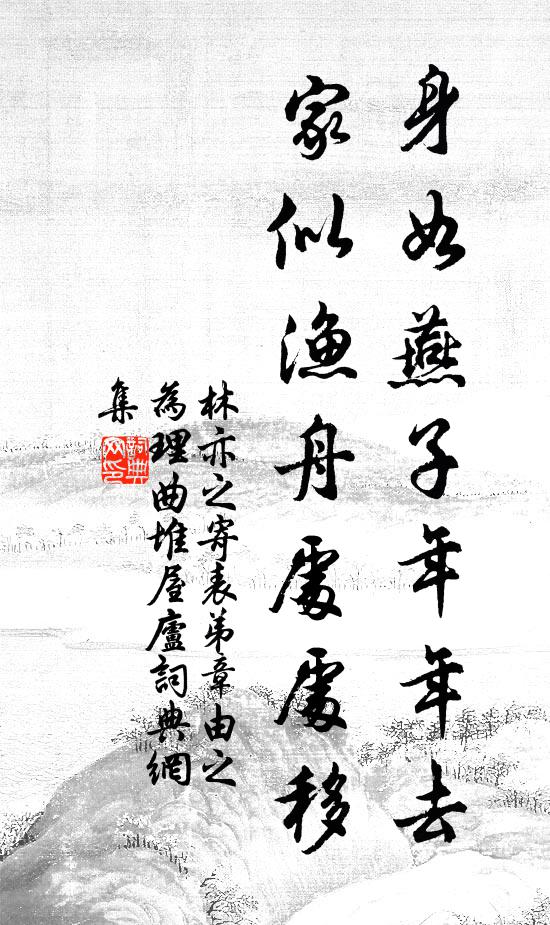 身如燕子年年去
家似漁舟處處移
林亦之寄表弟章由之
為理曲堆屋廬詞典網
集
詞典網印